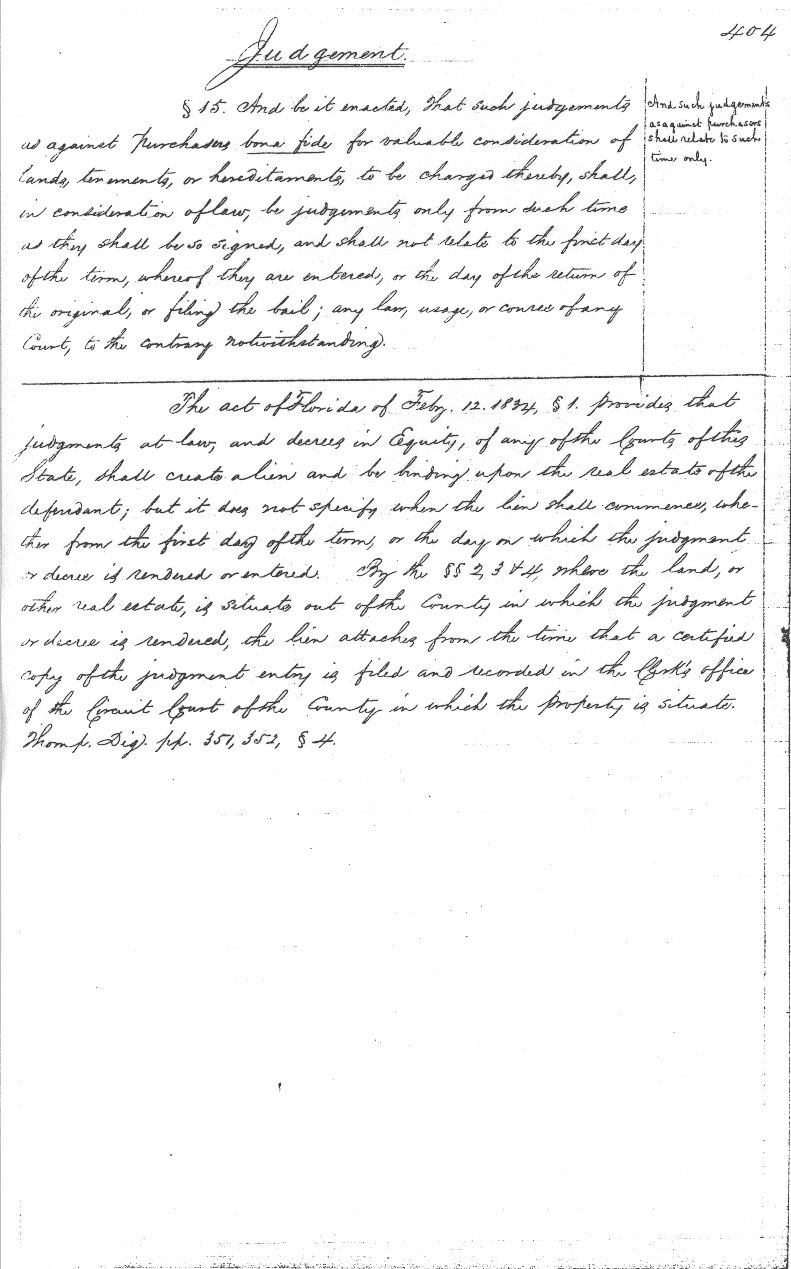 404
Judgement.
§ 15. And be it enacted, That such judgements
as against Purchasers bona fide for valuable consideration of
lands, tenements, or hereditaments, to be charged thereby, shall,
in consideration of law, be judgements only from such time
as they shall be so signed, and shall not relate to the first day
of the term, whereof they are entered, or the day of the return of
the original, or filing the bail; any law, usage, or course of any
Court, to the contrary notwithstanding.
And such judgements
as against purchasers
shall relate to such
time only.
The act of Florida of Feby. 12. 1834, § 1. provides that
judgments at law, and decrees in Equity, of any of the Courts of this
State, shall create a lien and be binding upon the real estate of the
defendant; but it does not specify when the lien shall commence, whe-
ther from the first day of the term, or the day on which the judgment
or decree is rendered or entered. By the §§ 2, 3 & 4, where the land, or
other real estate, is situate out of the County in which the judgment
or decree is rendered, the lien attaches from the time that a certified
copy of the judgment entry is filed and recorded in the Clerk's office
of the Circuit Court of the County in which the property is situate.
Thomp. Dig. pp. 351, 352, § 4.